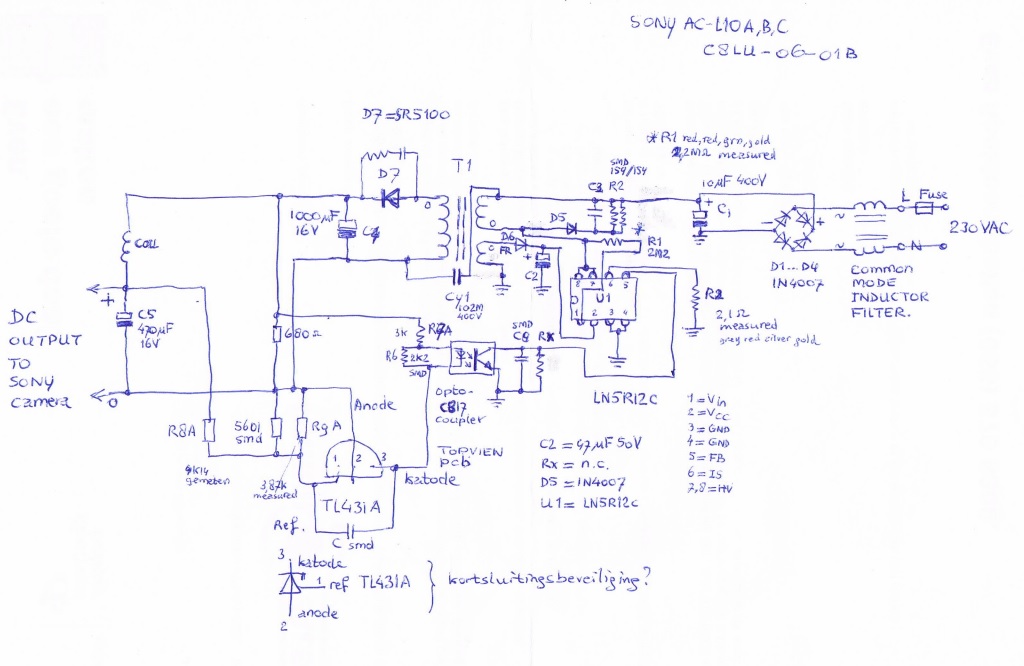 SONY AC-L10A,B,C
C8LU-06-01B
D7=SR5100
* R1 red,red,grn,gold
2,2MΩ measured
D7
T1
SMD
154/154
C3 R2
10µF 400V
+
C1
L
Fuse
230VAC
N
~
~
+
-
D1...D4
1N4007
COMMON
MODE
INDUCTOR
FILTER.
COIL
1000µF
16V
C4
O
O
O
O
D5
*
R1
2M2
D6
FR
+
C2
Cy1
102M
400V
8 7 6 5
U1
1 2 3 4
R2
2,1Ω
measured
grey red silver gold
+
C5
470µF
16V
DC
OUTPUT
TO
SONY
Camera
O
680Ω
3K
R6
2K2
SMD
SMD
C8
Rx
Opto-
C817
coupler
LN5R12C
1=Vin
2=VCC
3=GND
4=GND
5=FB
6=IS
7,8=HV
R8A
5601
smd
R9A
Anode
1 2 3
TOPVIEW
pcb
Katode
4K14
gemeten
3,87K
measured
TL431A
Ref.
C smd
C2 = 47µF 50V
Rx = n.c.
D5 = 1N4007
U1 = LN5R12C
3
katode
1 ref TL431A } kortsluitingsbeveiliging?
anode
2